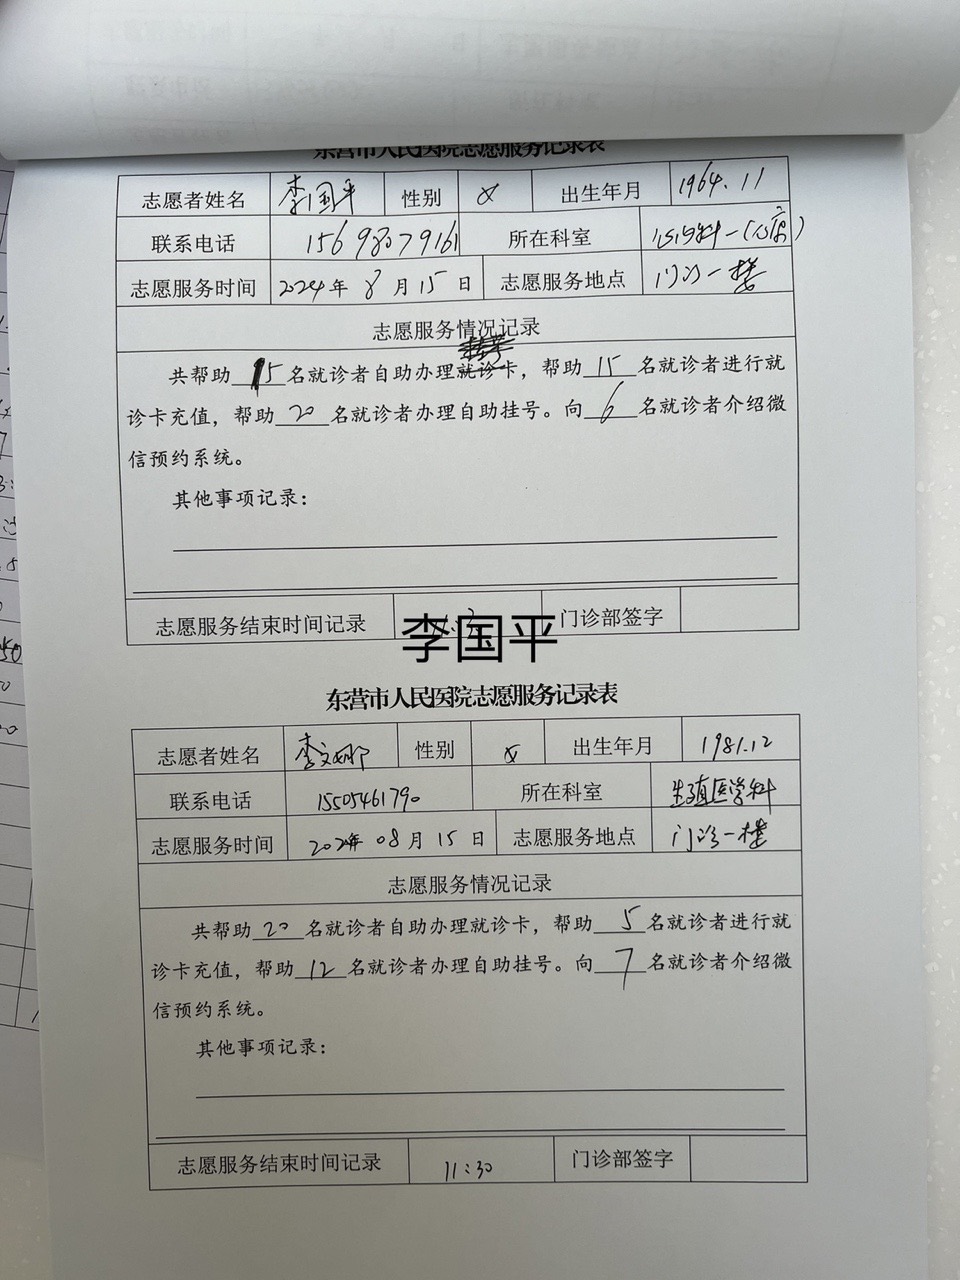 东营市人民医院志愿服务记录表
志愿者姓名 李国平 性别 女 出生年月 1964.11
联系电话 15698079161 所在科室
志愿服务时间 2024年 8 月 15 日 志愿服务地点 门诊一楼
志愿服务情况记录
共帮助 15 名就诊者自助办理就诊卡，帮助 15 名就诊者进行就
诊卡充值，帮助 20 名就诊者办理自助挂号。向 6 名就诊者介绍微
信预约系统。
其他事项记录：
志愿服务结束时间记录 门诊部签字
李国平
东营市人民医院志愿服务记录表
志愿者姓名 李文娜 性别 女 出生年月 1981.12
联系电话 15505461790 所在科室 生殖医学科
志愿服务时间 2024年 08 月 15 日 志愿服务地点 门诊一楼
志愿服务情况记录
共帮助 20 名就诊者自助办理就诊卡，帮助 5 名就诊者进行就
诊卡充值，帮助 12 名就诊者办理自助挂号。向 7 名就诊者介绍微
信预约系统。
其他事项记录：
志愿服务结束时间记录 11:30 门诊部签字